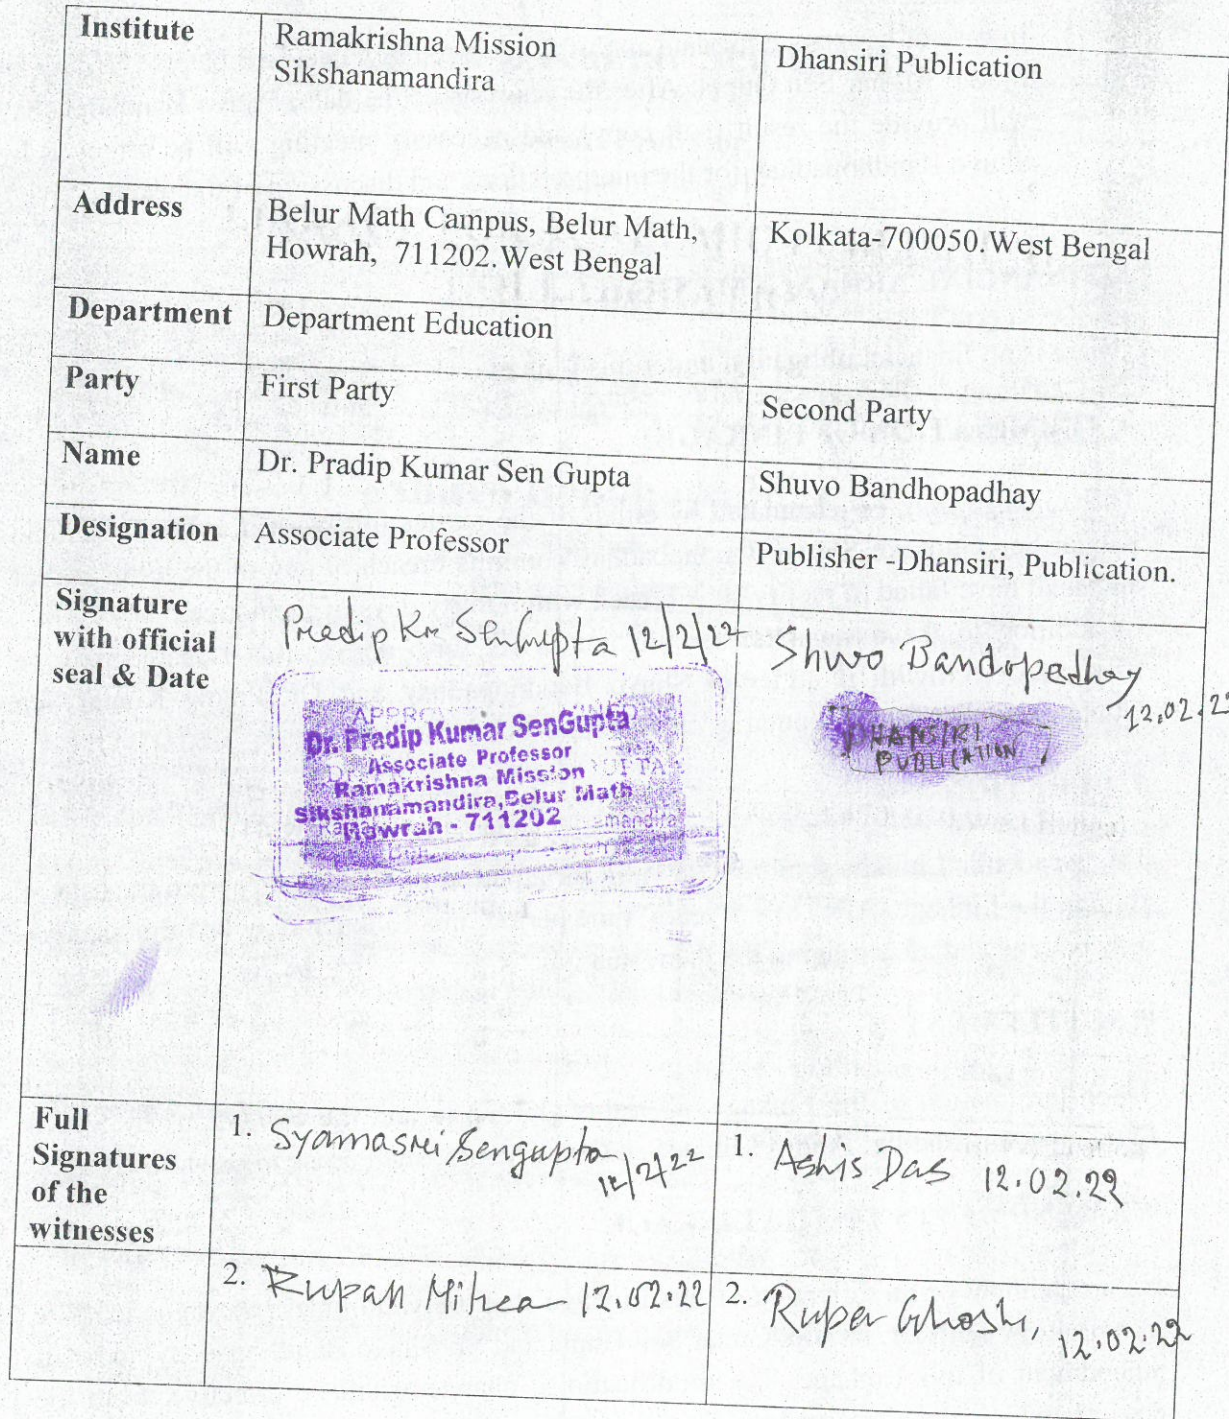 Institute
Ramakrishna Mission
Sikshanamandira
Dhansiri Publication
Address
Belur Math Campus, Belur Math,
Howrah, 711202.West Bengal
Kolkata-700050.West Bengal
Department
Department Education
Party
First Party
Second Party
Name
Dr. Pradip Kumar Sen Gupta
Shuvo Bandhopadhay
Designation
Associate Professor
Publisher -Dhansiri, Publication.
Signature
with official
seal & Date
Pradip Kr SenGupta 12/2/22
Dr. Pradip Kumar SenGupta
Associate Professor
Ramakrishna Mission
Sikshanamandira,Belur Math
Howrah - 711202
Shuvo Bandopadhay
12.02.22
DHANSIRI
PUBLICATION
Full
Signatures
of the
witnesses
1. Syamasri Sengupta
12/2/22
1. Ashis Das 12.02.22
2. Rupan Mitra 12.02.22
2. Rupa Ghosh, 12.02.22